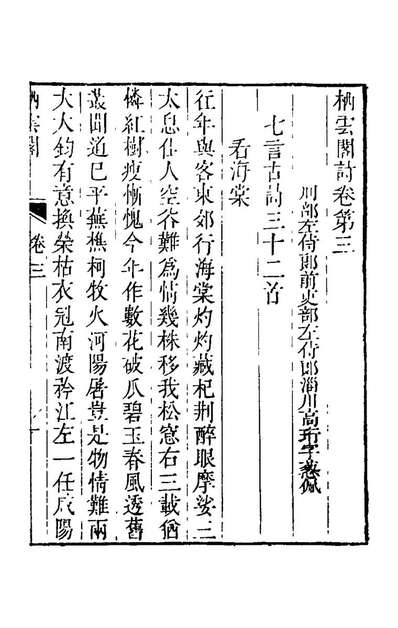 栖雲閣詩卷第三
刑部左侍郎前吏部左侍郎淄川高珩字葱佩
七言古詩三十二首
看海棠
往年與客東郊行海棠灼灼藏杞荆醉眼摩娑三
太息仙人空谷難爲情幾株移我松窻右三載猶
憐紅樹瘦慚愧今年作數花破瓜碧玉春風透舊
叢聞道已平蕪樵柯牧火河陽屠豈是物情難兩
大大鈞有意換榮枯衣冠南渡矜江左一任咸陽
栖雲閣
卷三
一